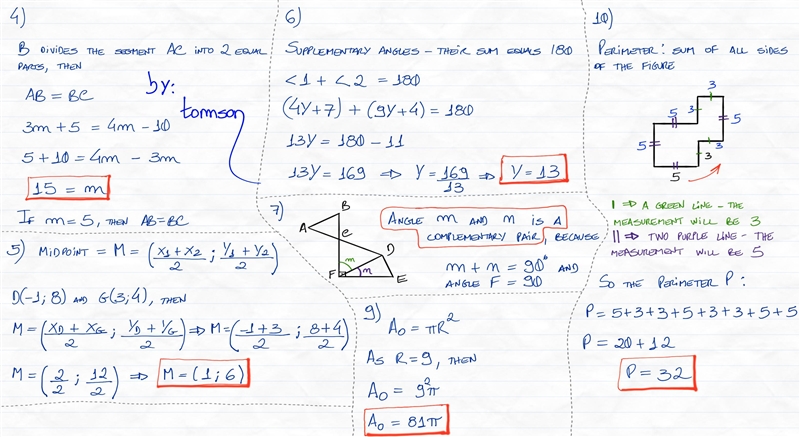 4)
B DIVIDES THE SEGMENT AC INTO 2 EQUAL
PARTS, THEN
AB = BC
3m + 5 = 4m - 10
5 + 10 = 4m - 3m
15 = m
IF m = 5, THEN AB = BC
by:
tomson
5) MIDPOINT = M = (x1 + x2 / 2 ; Y1 + Y2 / 2)
D(-1; 8) AND G(3; 4), THEN
M = (xD + xG / 2 ; YD + YG / 2) ⇒ M = (-1 + 3 / 2 ; 8 + 4 / 2)
M = (2 / 2 ; 12 / 2) ⇒ M = (1 ; 6)
6)
SUPPLEMENTARY ANGLES - THEIR SUM EQUALS 180
<1 + <2 = 180
(4Y + 7) + (9Y + 4) = 180
13Y = 180 - 11
13Y = 169 ⇒ Y = 169 / 13 ⇒ Y = 13
7)
B
A
C
D
m
F
m
E
ANGLE m AND m IS A
COMPLEMENTARY PAIR, BECAUSE
m + n = 90° AND
ANGLE F = 90
9)
Ao = πR²
AS R = 9, THEN
Ao = 9²π
Ao = 81π
10)
PERIMETER: SUM OF ALL SIDES
OF THE FIGURE
3
5
3
5
5
3
3
5
| ⇒ A GREEN LINE - THE
MEASUREMENT WILL BE 3
|| ⇒ TWO PURPLE LINE - THE
MEASUREMENT WILL BE 5
SO THE PERIMETER P:
P = 5 + 3 + 3 + 5 + 3 + 3 + 5 + 5
P = 20 + 12
P = 32